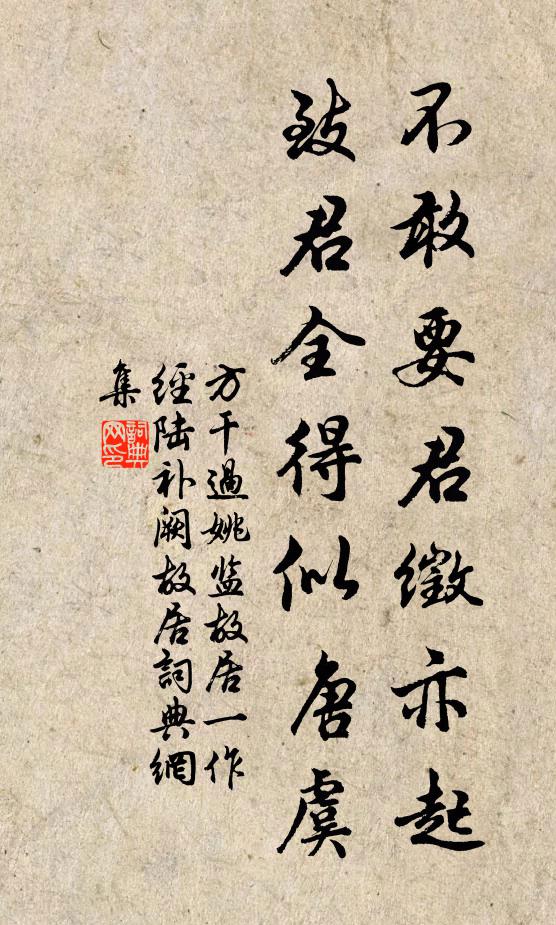 不敢要君徵亦起
致君全得似唐虞
方干過姚监故居一作
經陆补阙故居詞典網
集
詞典网印